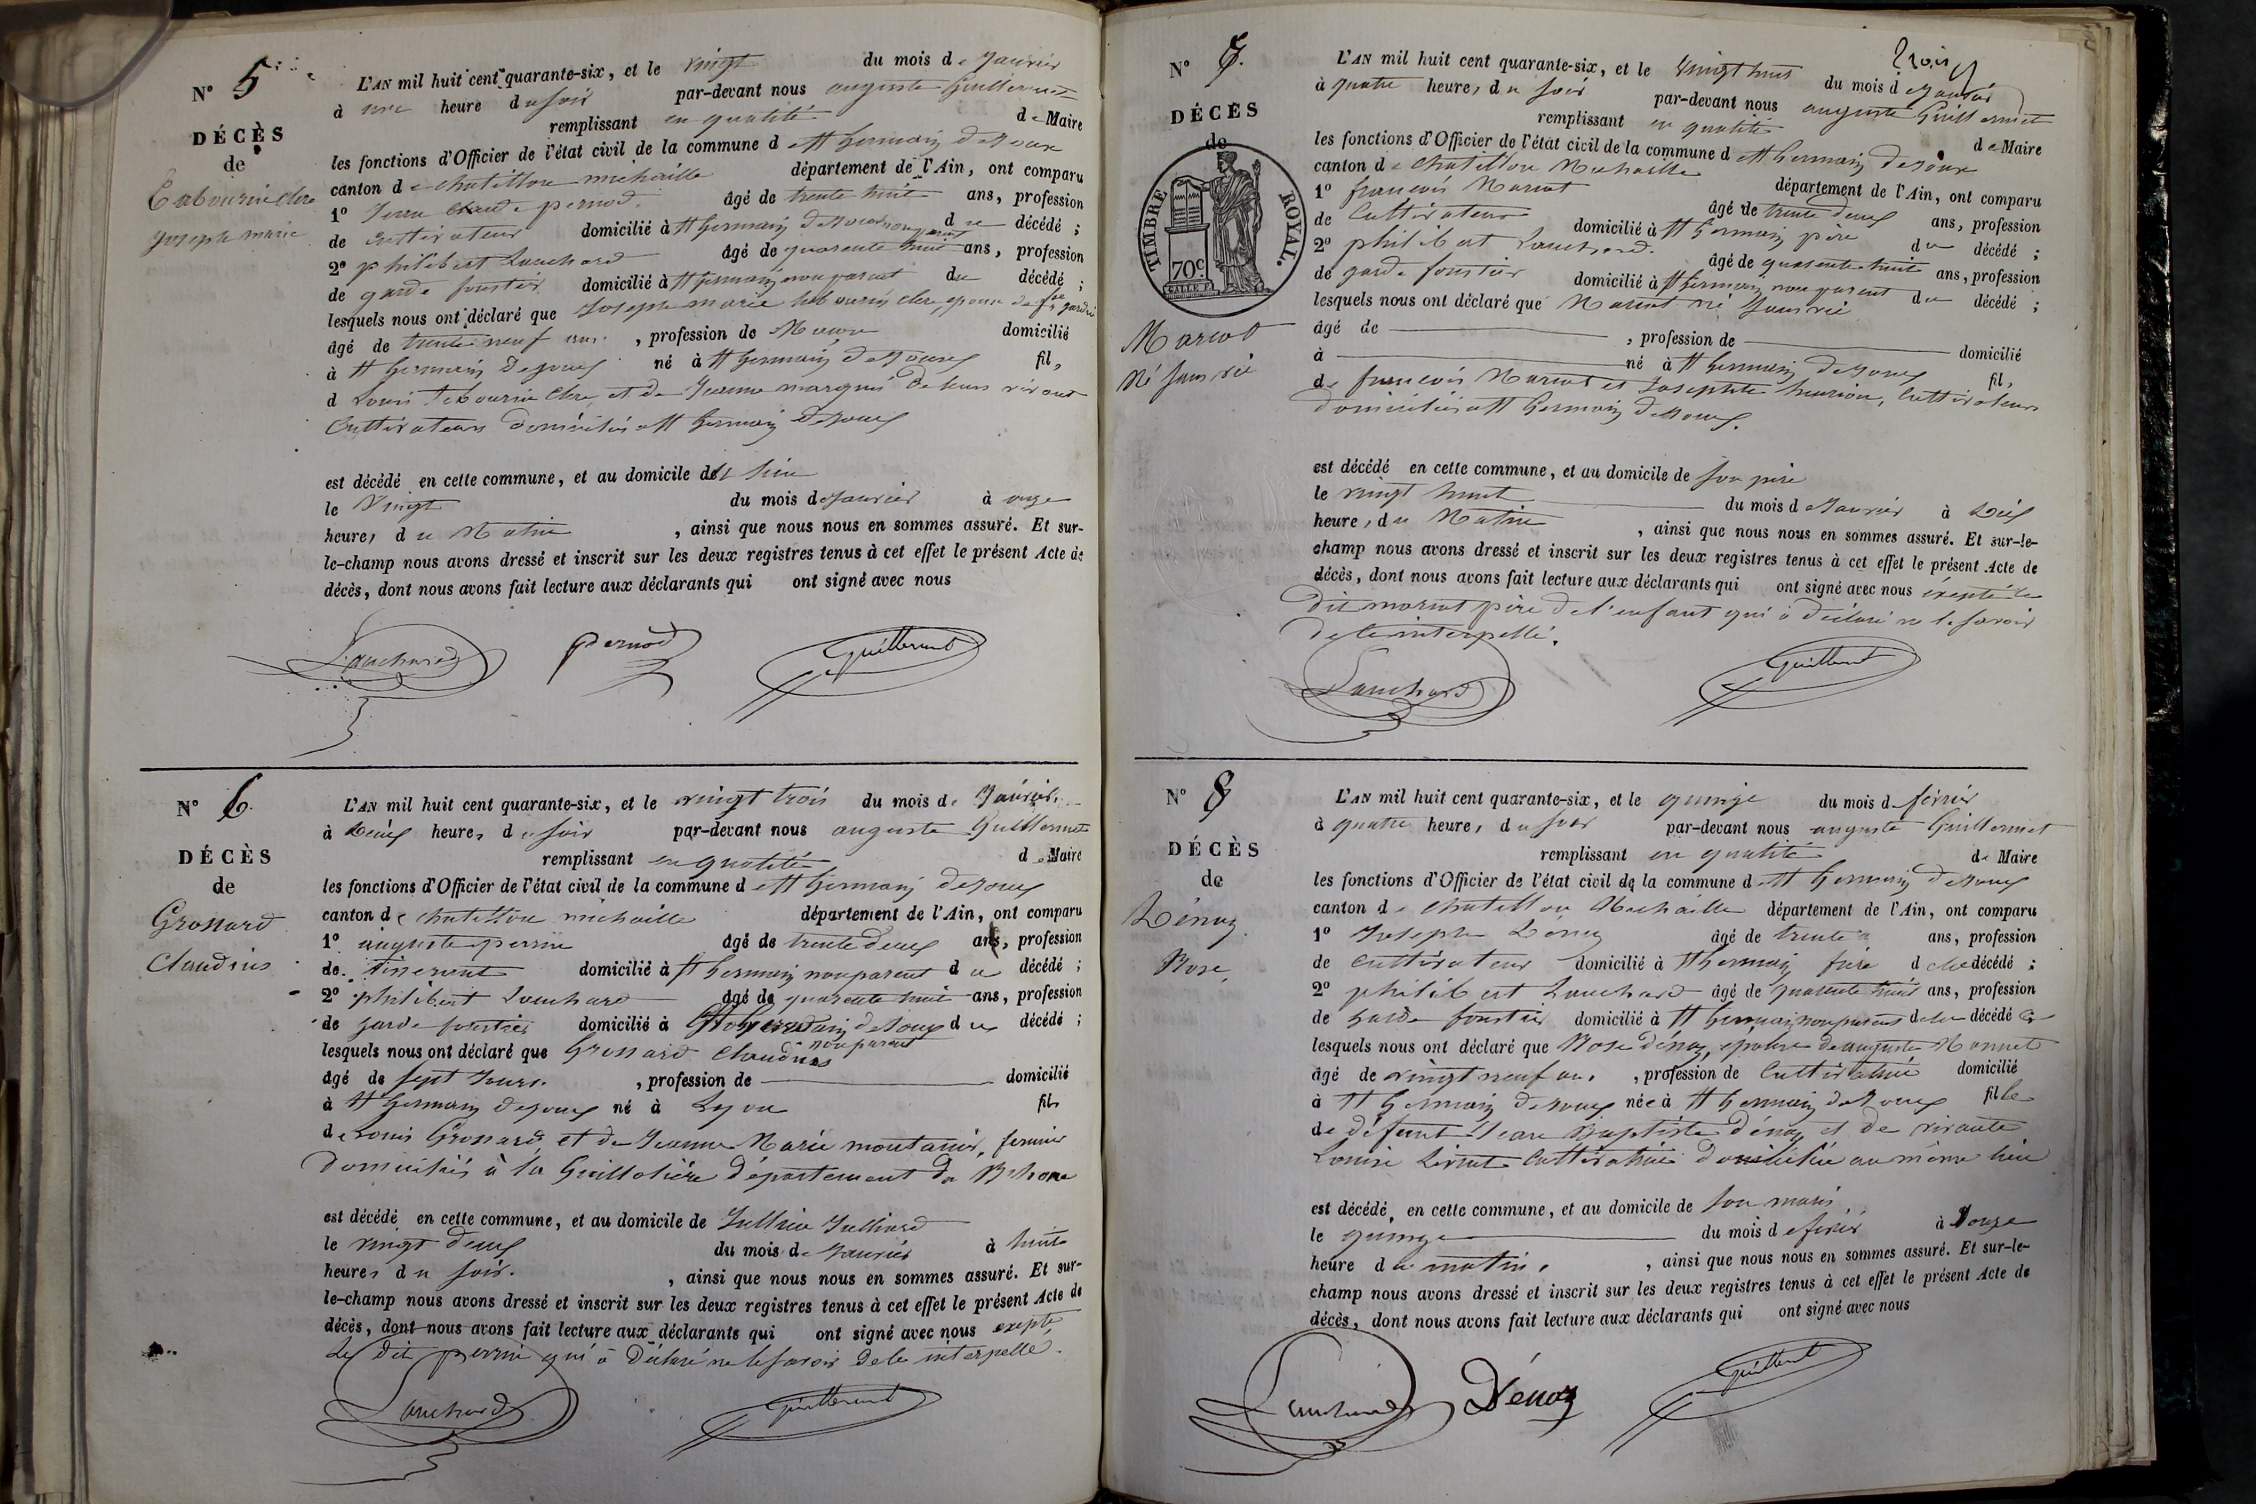 N° 5
DÉCÈS
de
Joseph marie
L'AN mil huit cent quarante-six, et le vingt du mois de Janvier
à une heure du soir par-devant nous auguste Guillermet
remplissant en qualité de Maire
les fonctions d'Officier de l'état civil de la commune de St Germain de Joux
canton de chatillon michaille département de l'Ain, ont comparu
1° Jean Claude pernod âgé de trente huit ans, profession
de cultivateur domicilié à St Germain de Joux non parent du décédé ;
2° philibert Lauchard âgé de quarente huit ans, profession
de garde foustier domicilié à St Germain non parent du décédé ;
lesquels nous ont déclaré que Joseph marie épouse de
âgé de trente neuf ans, profession de Maçon domicilié
à St Germain de Joux né à St Germain de Joux fils
d Louis et de Jeanne marquis de leurs vivant
Cultivateurs domiciliés à St Germain de Joux
est décédé en cette commune, et au domicile de
le Vingt du mois de Janvier à onze
heures du Matin, ainsi que nous nous en sommes assuré. Et sur-
le-champ nous avons dressé et inscrit sur les deux registres tenus à cet effet le présent Acte de
décès, dont nous avons fait lecture aux déclarants qui ont signé avec nous
Lauchard pernod Guillermet
N° 6
DÉCÈS
de
Grossard
Claudius
L'AN mil huit cent quarante-six, et le vingt trois du mois de Janvier
à Deux heures du soir par-devant nous auguste Guillermet
remplissant en qualité de Maire
les fonctions d'Officier de l'état civil de la commune de St Germain de Joux
canton de chatillon michaille département de l'Ain, ont comparu
1° auguste perrin âgé de trente deux ans, profession
de tisserant domicilié à St Germain non parent du décédé ;
2° philibert Lauchard âgé de quarente huit ans, profession
de garde foustier domicilié à St Germain de Joux du décédé ;
non parent
lesquels nous ont déclaré que Grossard Claudius
âgé de sept Jours, profession de domicilié
à St Germain de Joux né à Lyon fils
de Louis Grossard et de Jeanne Marie montanier, fermier
Domiciliés à la Guillotière département du Rhone
est décédé en cette commune, et au domicile de Julliard
le vingt deux du mois de Janvier à huit
heures du soir, ainsi que nous nous en sommes assuré. Et sur-
le-champ nous avons dressé et inscrit sur les deux registres tenus à cet effet le présent Acte de
décès, dont nous avons fait lecture aux déclarants qui ont signé avec nous exepté
Le dit perrin qui à Déclaré ne le savoir de le interpellé.
Lauchard Guillermet
N° 7.
DÉCÈS
de
TIMBRE ROYAL.
70c
Mariot
Né sans vie
L'AN mil huit cent quarante-six, et le Vingt huit du mois de Janvier
à quatre heures du soir par-devant nous auguste Guillermet
remplissant en qualité de Maire
les fonctions d'Officier de l'état civil de la commune de St Germain de Joux
canton de chatillon Michaille département de l'Ain, ont comparu
1° françois Mariot âgé de trente deux ans, profession
de Cultivateur domicilié à St Germain père du décédé ;
2° philibert Lauchard âgé de quarente huit ans, profession
de garde foustier domicilié à St Germain non parent du décédé ;
lesquels nous ont déclaré que Mariot né sans vie
âgé de , profession de domicilié
à né à St Germain de Joux fils
de françois Mariot et Josephte Cultivateurs
domiciliés à St Germain de Joux.
est décédé en cette commune, et au domicile de son père
le vingt huit du mois de Janvier à Dix
heures du Matin, ainsi que nous nous en sommes assuré. Et sur-le-
champ nous avons dressé et inscrit sur les deux registres tenus à cet effet le présent Acte de
décès, dont nous avons fait lecture aux déclarants qui ont signé avec nous exepté le
dit mariot père de l'enfant qui à Déclaré ne le savoir
de le interpellé.
Lauchard Guillermet
N° 8
DÉCÈS
de
Dénoz
Rose
L'AN mil huit cent quarante-six, et le quinze du mois de février
à quatre heures du soir par-devant nous auguste Guillermet
remplissant en qualité de Maire
les fonctions d'Officier de l'état civil de la commune de St Germain de Joux
canton de chatillon Michaille département de l'Ain, ont comparu
1° Joseph Dénoz âgé de trente ans, profession
de cultivateur domicilié à St Germain frère de la décédé ;
2° philibert Lauchard âgé de quarente huit ans, profession
de garde foustier domicilié à St Germain non parent de la décédé
lesquels nous ont déclaré que Rose dénoz, épouse de auguste Monnet
âgé de vingt neuf ans, profession de Cultivatrice domicilié
à St Germain de Joux née à St Germain de Joux fille
de défunt Jean Baptiste dénoz et de vivante
Louise Cultivatrice domiciliée au même lieu
est décédé en cette commune, et au domicile de son mari
le quinze du mois de février à Douze
heure du matin, ainsi que nous nous en sommes assuré. Et sur-le-
champ nous avons dressé et inscrit sur les deux registres tenus à cet effet le présent Acte de
décès, dont nous avons fait lecture aux déclarants qui ont signé avec nous
Lauchard Dénoz Guillermet